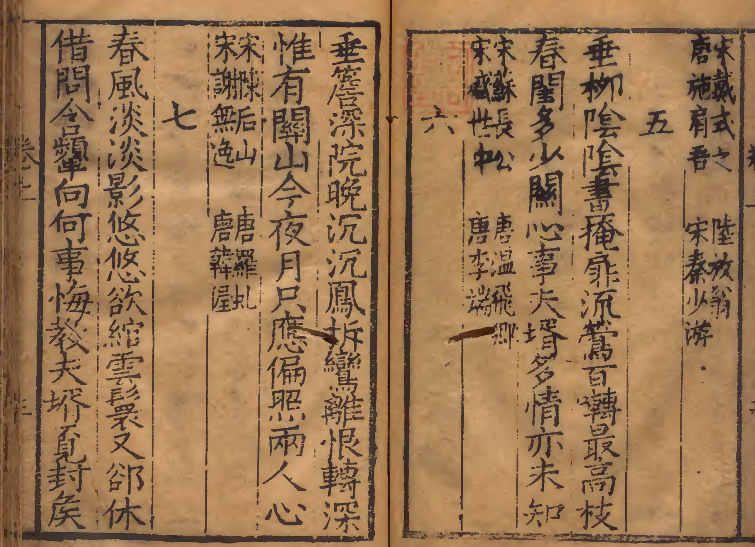 宋戴式之 陸放翁
唐施肩吾 宋秦少游
五
垂柳陰陰晝掩扉流鶯百囀最高枝
春閨多少關心事夫壻多情亦未知
宋蘇長公 唐溫飛卿
宋戴世中 唐李端
六
垂簷深院晚沉沉鳳拆鸞離恨轉深
惟有關山今夜月只應偏照兩人心
宋陳后山 唐羅虬
宋謝無逸 唐韓偓
七
春風淡淡影悠悠欲綰雲鬟又郤休
借問含顰向何事悔教夫壻覓封矦